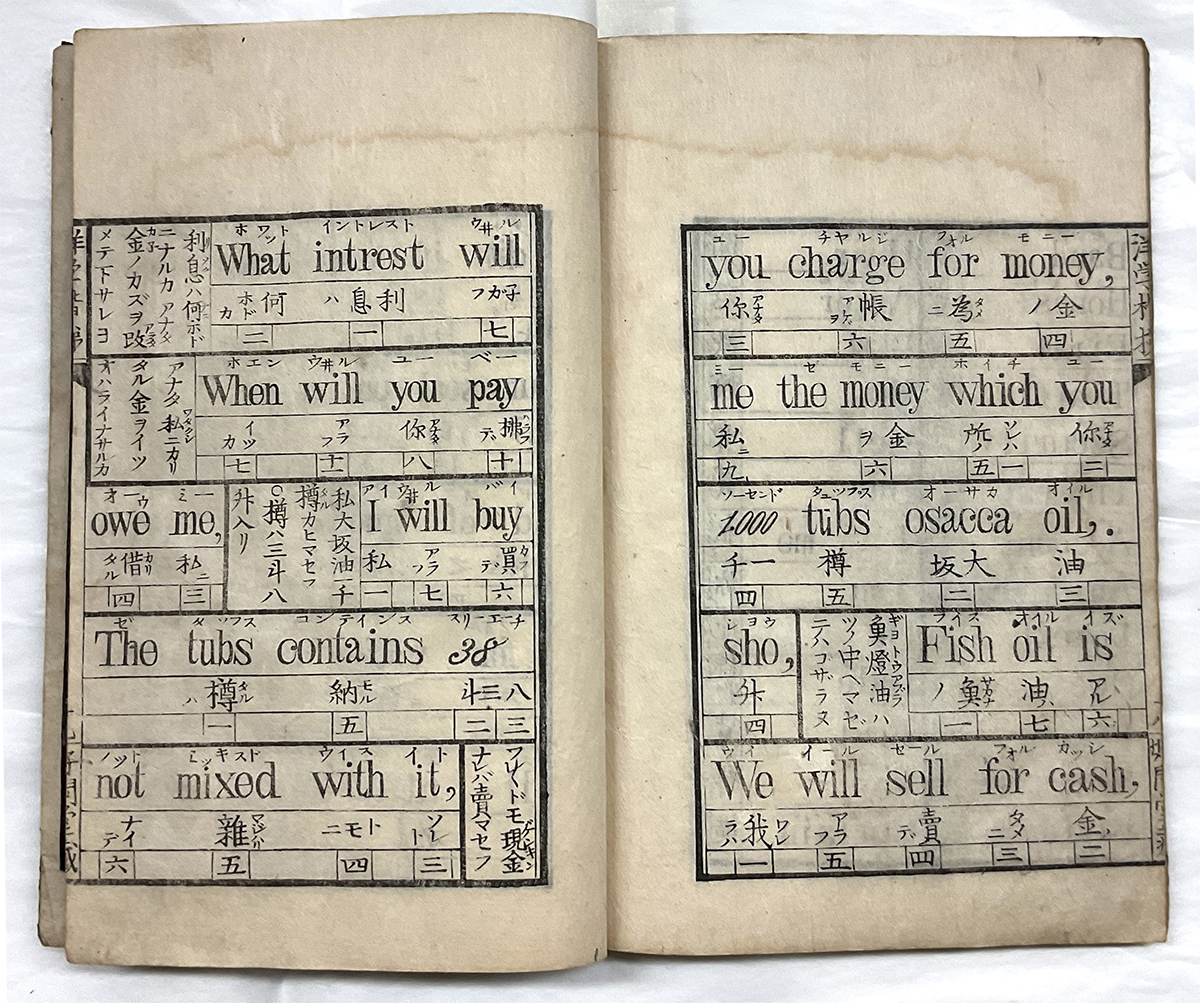 利息ハ何ホド
ニナルカ アナタ
金ノカズヲ改
メテ下サレヨ
ホワット イントレスト ウ井ル
What intrest will
ホド何カ ハ息利
二 一 七
アナタ私ニカリ
タル金ヲイツ
オハライナサルカ
ホエン ウ井ル ユー ペー
When will you pay
イツカ アラフ 你アナタ 拂ハラフデ
七 十二 八 十
オーウ ミー
owe me,
借カリタル 私ニ
四 三
私大坂油千
樽カヒマセフ
○樽ハ三斗八
升入リ
アイ ウ井ル バイ
I will buy
私 アラフ 買カフデ
一 七 六
ゼ タップス コンテインス スリーエーチ
The tubs contains 38
ハ樽タル 納モル 斗三八
一 五 二 三
ノット ミッキスド ウイス イト
not mixed with it,
ナイデ 雑マジハリ ニモト ソレト
六 五 四 三
現金
ナレバ賣マセフ
ユー チヤルジ フォル モニー
you charge for money,
你アナタ 帳 ニ為タメ ノ金
三 六 五 四
ミー ゼ モニー ホイチ ユー
me the money which you
私ニ ヲ金 所ノ ソレハ 你アナタ
九 六 五 一 二
ソーセンド タップス オーサカ オイル
1.000 tubs osacca oil,.
千一 樽 坂大 油
四 五 二 三
ショウ
sho,
升
四
魚燈油ハ
ツノ中ヘマゼ
ニハゴザラヌ
オイル イズ
Fish oil is
ノ魚サカナ 油ハ アル
一 七 六
ウイ イール セール フォル カッシ
We will sell for cash,
我ワレラハ アラフ 賣デ タメニ 金ノ
一 五 四 三 二